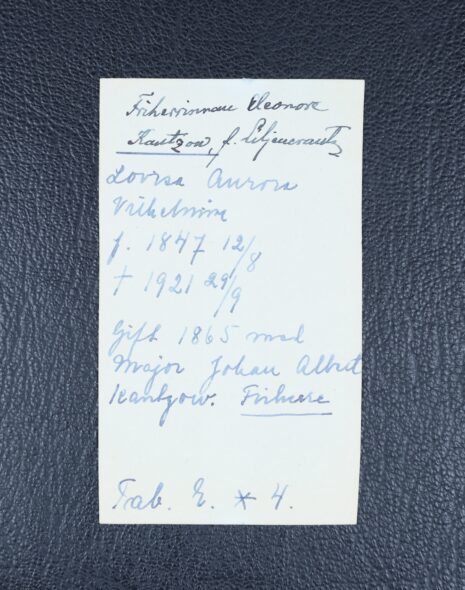 Friherrinnan Eleonore
Kantzow, f. Liljencrantz
Lovisa Aurora
Vilhelmina
f. 1847 12/8
† 1921 29/9
Gift 1865 med
Major Johan Albert
Kantzow. Friherre
Tab. 2. * 4.